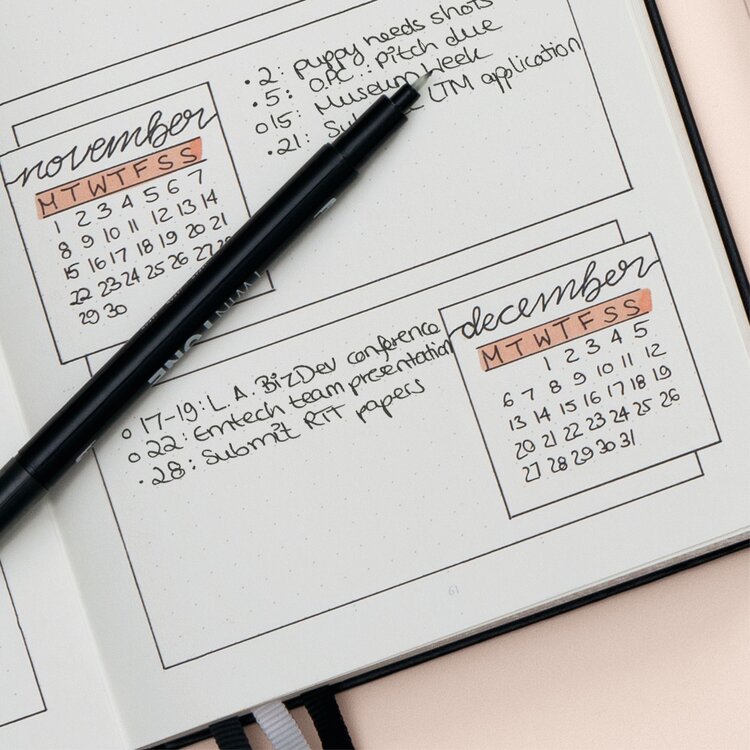 .2: puppy needs shots
.5: O.P.C.: pitch due
o15: Museum Week
.21: LTM application
november
M T W T F S S
1 2 3 4 5 6 7
8 9 10 11 12 13 14
15 16 17 18 19 20 21
22 23 24 25 26 27
29 30
TWIN TONE
december
M T W T F S S
1 2 3 4 5
6 7 8 9 10 11 12
13 14 15 16 17 18 19
20 21 22 23 24 25 26
27 28 29 30 31
o 17-19: L.A. BizDev conference
o 22: Emtech team presentation
. 28: Submit RIT papers
61